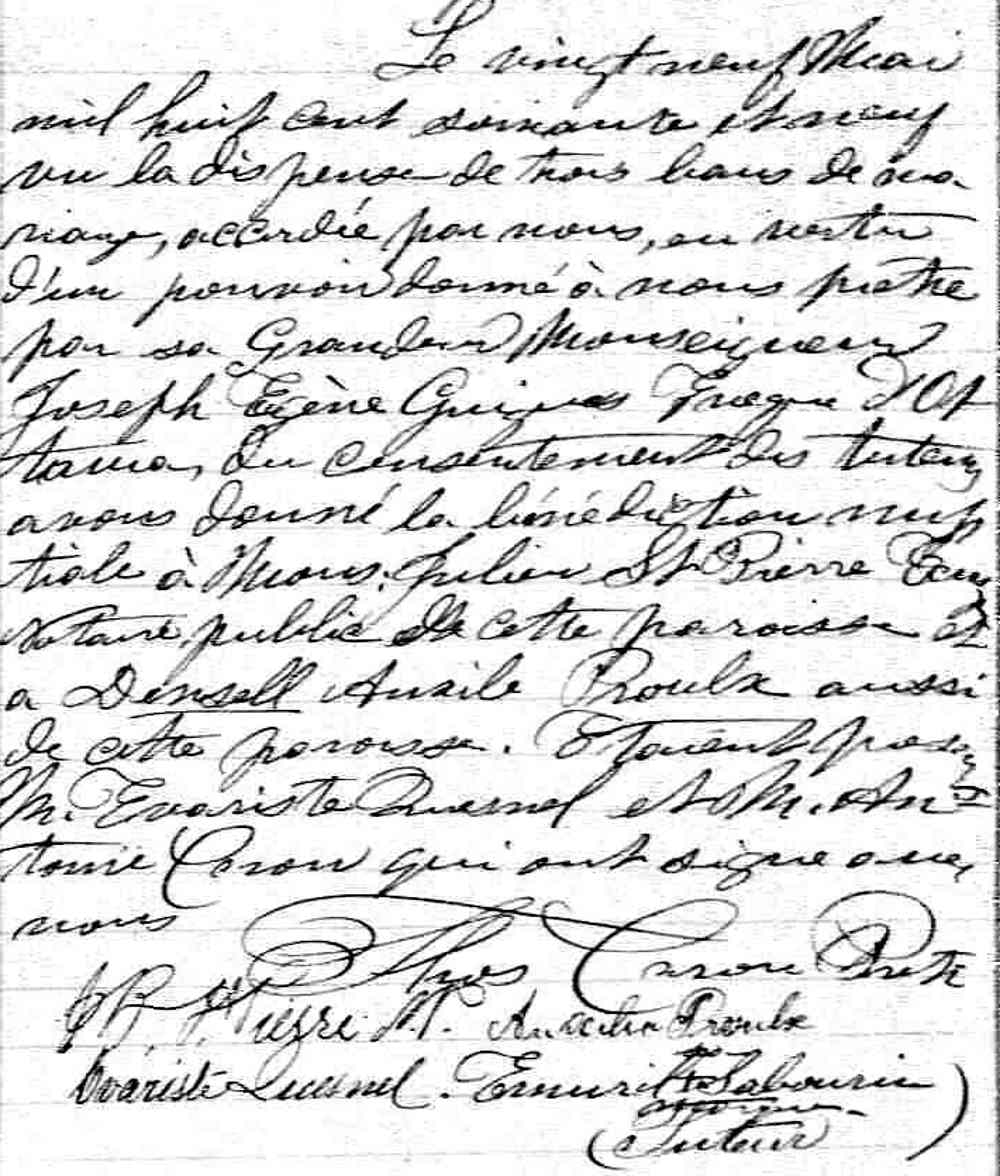 Le vingt neuf Mai
mil huit cent soixante et neuf
vu la dispense de trois bans de ma-
riage, accordée par nous, en vertu
d'un pouvoir donné à nous prêtre
par sa Grandeur Monseigneur
Joseph Eugène Guigues Evêque d'Ot
tawa, du consentement des tuteurs
avons donné la bénédiction nup
tiale à Mons. Julien St Pierre Ecuy
Notaire public de cette paroisse et
a Demsell Auxile Proulx aussi
de cette paroisse. Etaient pres
M. Evariste Quesnel et M. An
toine Caron qui ont signé avec
nous
Thos Caron Ptre
St Pierre N.P. Auxilia Proulx
Evariste Quesnel. Sabourin
(Tuteur)